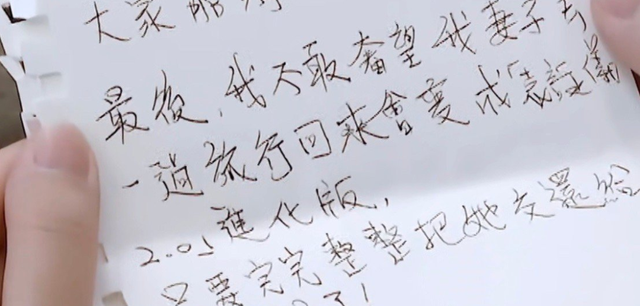 大家
最後,我不敢奢望我妻子去
一趟旅行回來會變成「袁詠儀
2.0」進化版,
只要完完整整把她交還給
了!